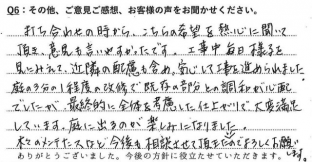 Q6：その他、ご意見ご感想、お客様の声をお聞かせください。
打ち合わせの時から、こちらの希望を熱心に聞いて
頂き、意見も言いやすかったです。工事中毎日様子を
見にみえて、近隣の配慮も含め、安心して工事を進められました
庭の3分の1程度の改修で既存の部分との調和が心配
でしたが、最終的に全体を考慮した仕上がりで大変満足
しています。庭に出るのが楽しみになりました。
木々のメンテナンスなど今後も相談させて頂きたいのでよろしくお願い
ありがとうございました。今後の方針に役立たせていただきます。
します。